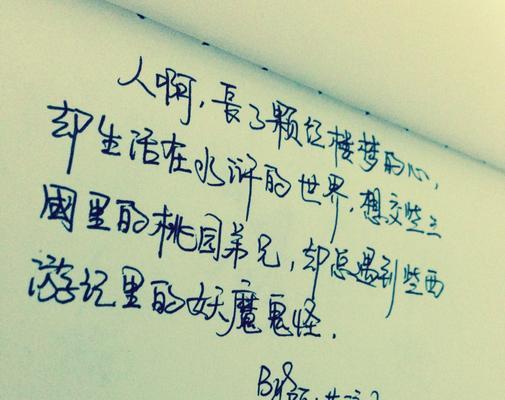 人啊，長了颗红楼梦的心，
却生活在水浒的世界，想交些三
國里的桃园弟兄，却总遇到些西
游记里的妖魔鬼怪．